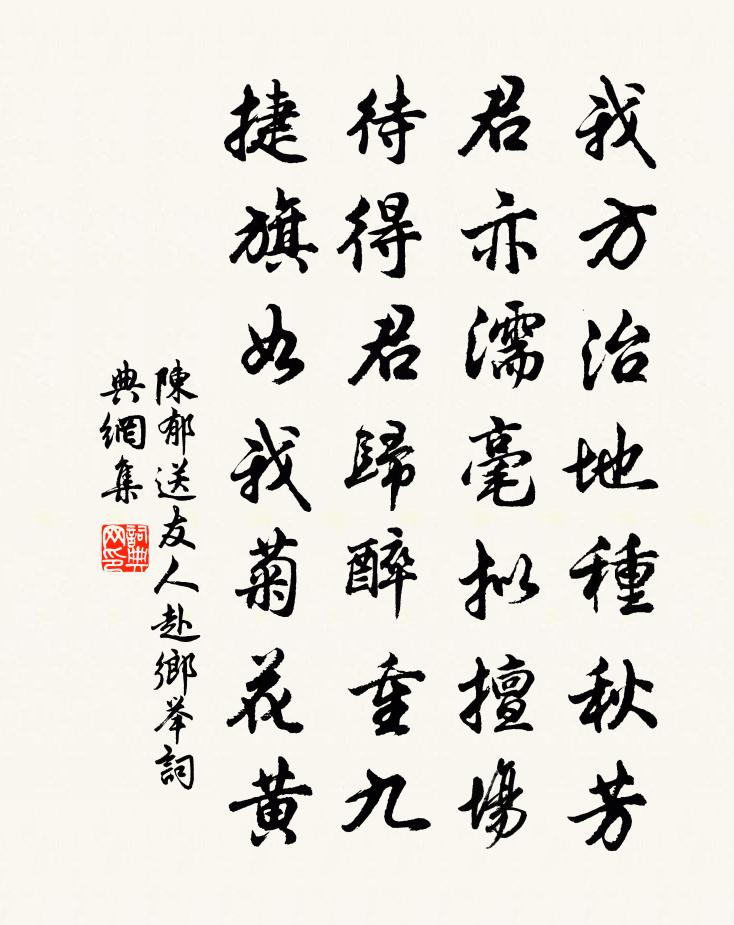 我方治地種秋芳
君亦濡毫擬擅場
待得君歸醉重九
捷旗如我菊花黃
陳郁送友人赴鄉举詞
典網集
詞典网印